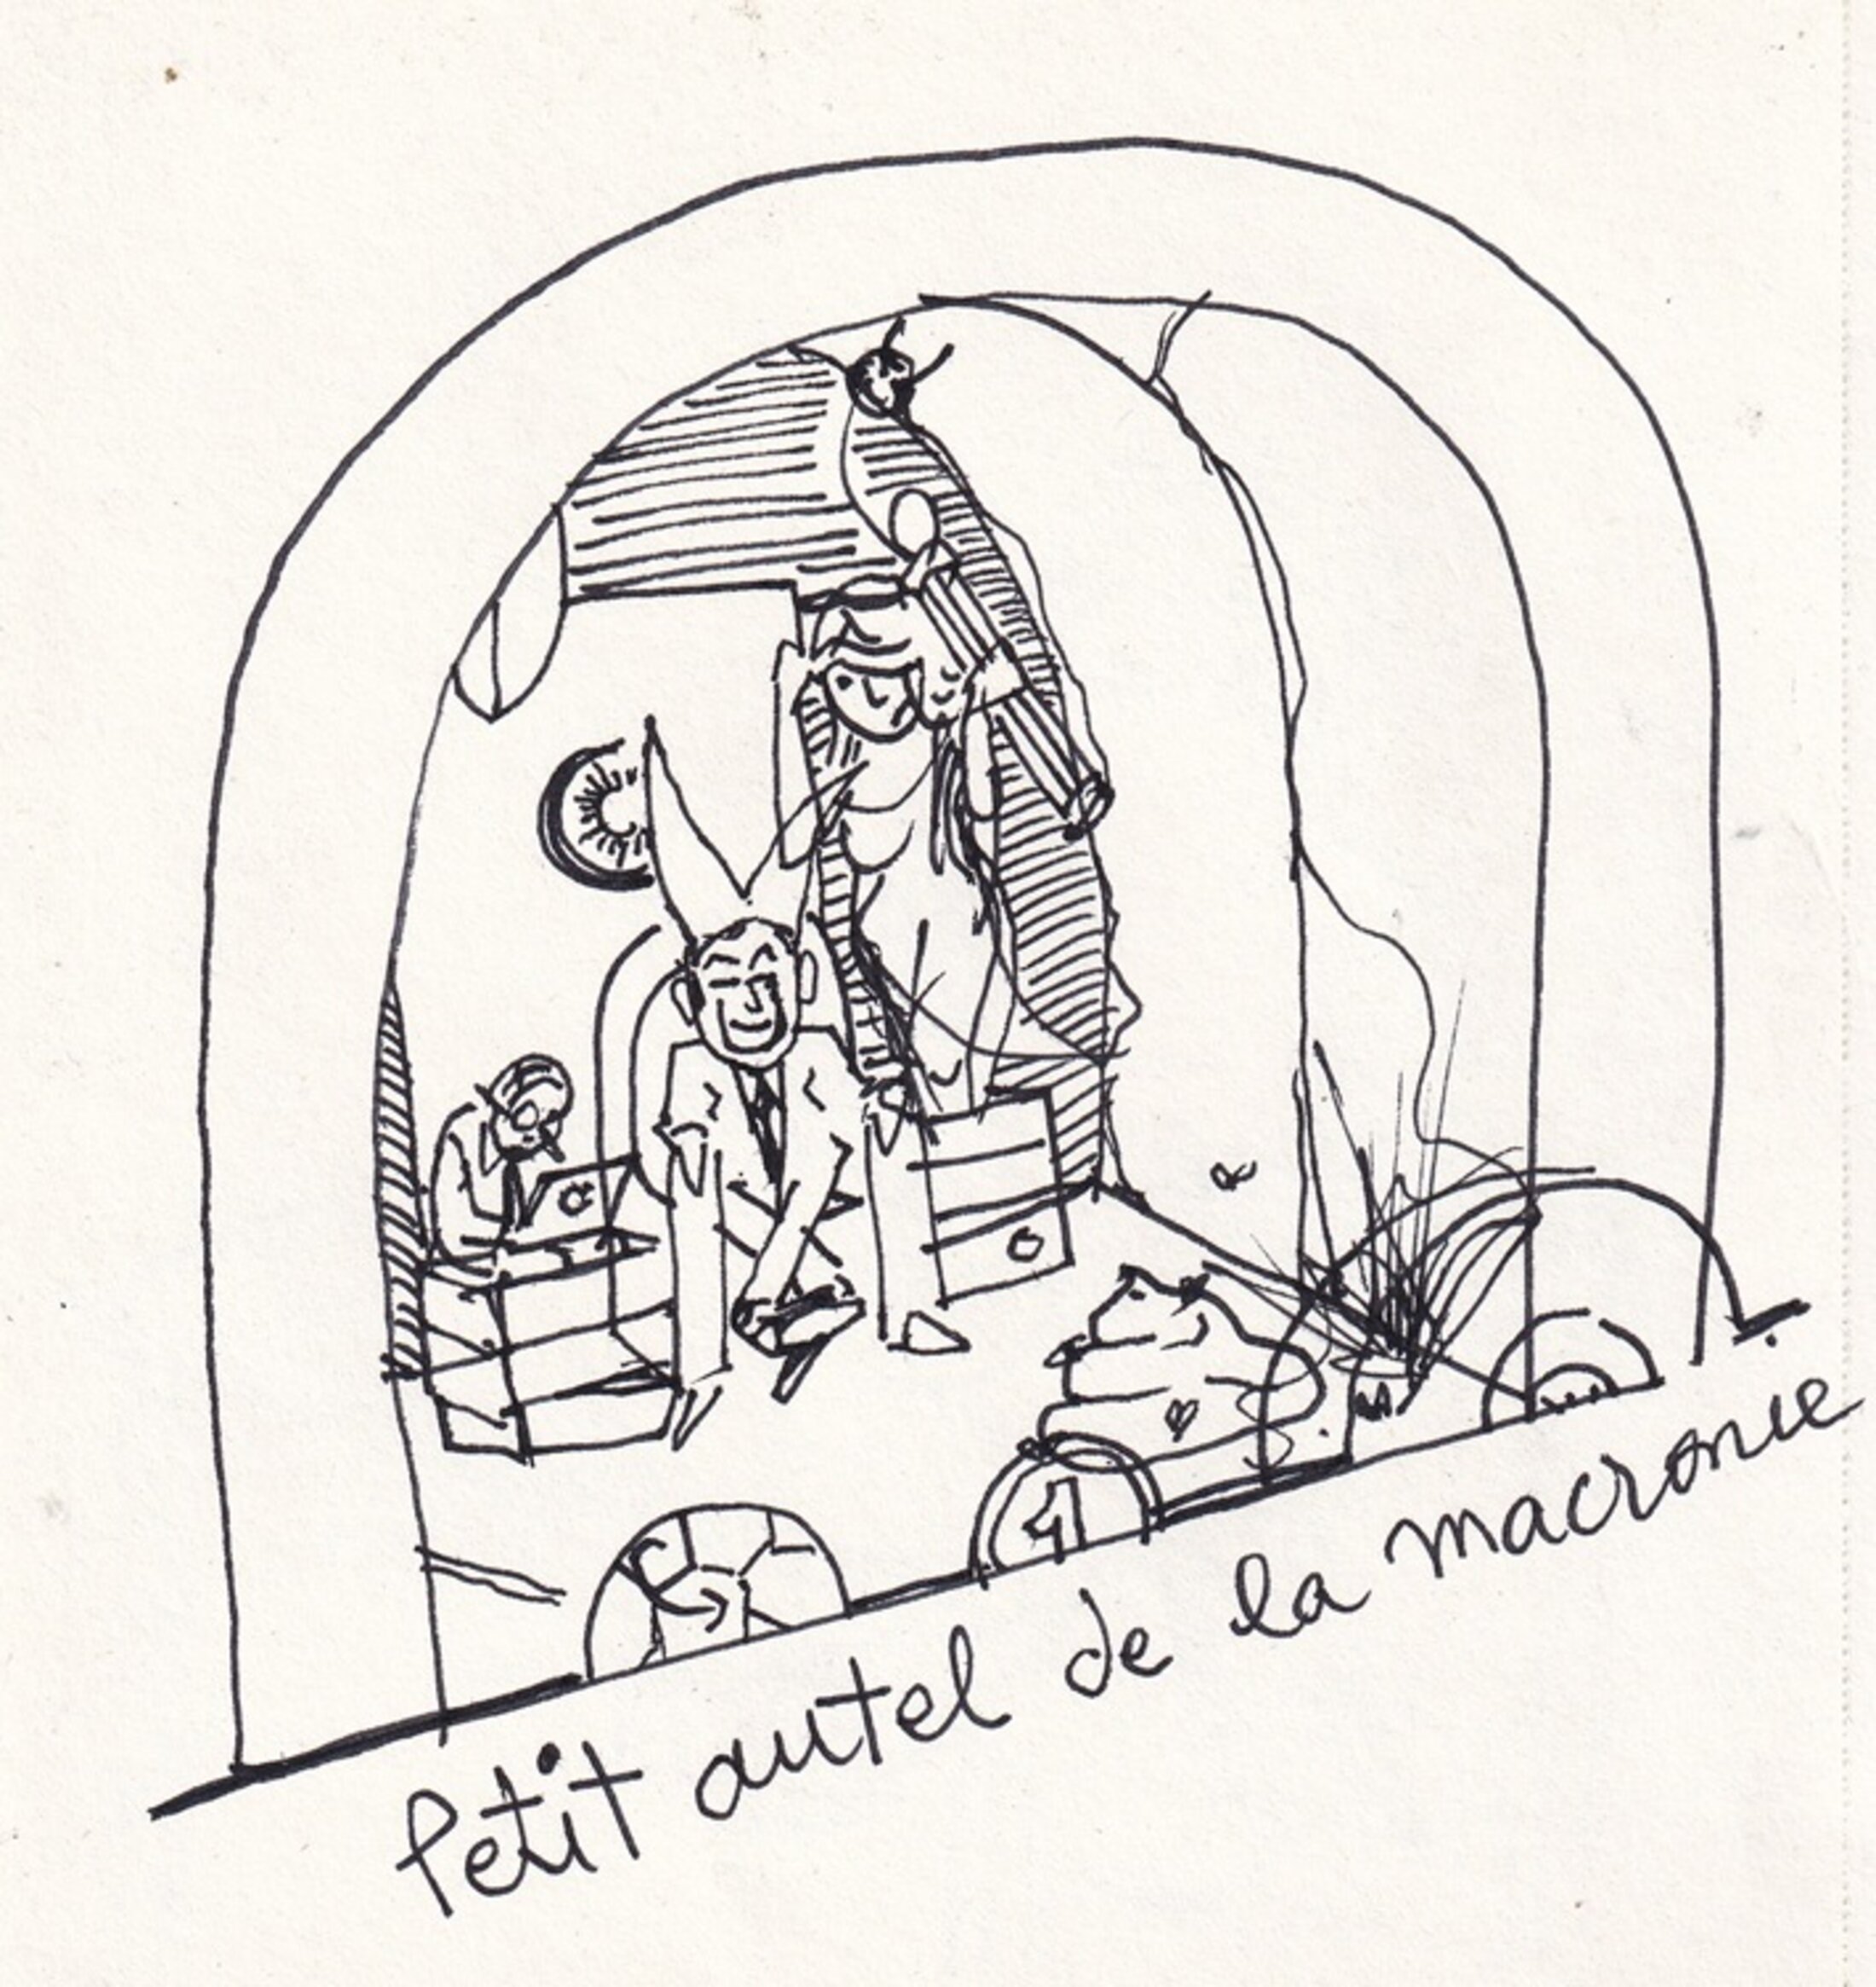 Petit autel de la macronie
1